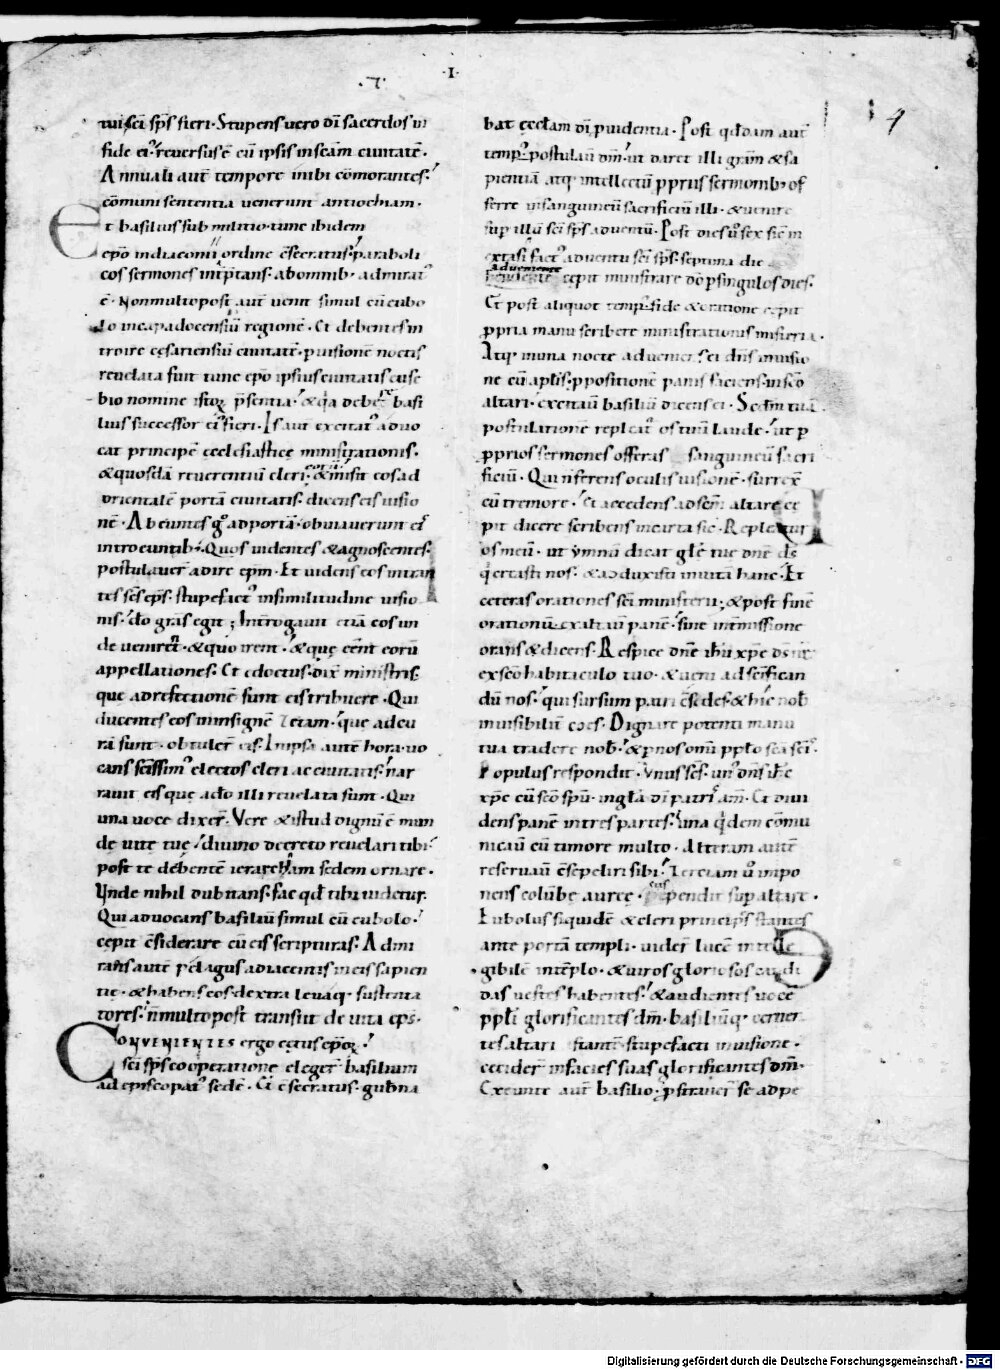 ·I·
4
tui sci sp̄s fieri· Stupens uero dī sacerdos in
fide ei' reuersus ē cū ipsis in scām ciuitatē·
Annuali aut̄ tempore inibi cōmorantes
cōmuni sententia uenerunt antiochiam·
Et basilius sub militio tunc ibidem
ep̄o indiaconi ordine c̄secratus parabolicos
cos sermones int̄ptans· ab omnib; admirat'
ē· Non multo post aut̄ uenit simul cū eubo
lo in capadocensiū regionē· Et debentes in
troire cęsariensiū ciuitatē· p uisionē noctis
reuelata fuit tunc ep̄o ipsius ciuitatis euse
bio nomine istoꝝ p̄sentia· & q̄a deberet basi
lius successor ei' fieri· Is aut excitat' aduo
cat principē ęcclesiasticę ministrationis·
& quosdā reuerentiū cleri· & misit eos ad
orientalē portā ciuitatis· dicens eis uisio
nē· Abeuntes g° ad portā· obuiauerunt ei'
introeuntib;· Quos uidentes & agnoscentes·
postulauer̄ adire ep̄m· Et uidens eos intran
tes sc̄s ep̄s· stupefact' in similitudine uisio
nis· do grās egit; Int̄rogauit etiā eos un
de uenirēt· & quo irent· & quę eēnt eorū
appellationes· Et edoctus· dix̄ ministris
que ad refectionē sunt eis tribuere· Qui
ducentes eos in insignē
rā sunt· obtuler̄ eis· In ipsa autē hora uo
cans sc̄issim' electos cleri ac ciuitatis· nar
rauit eis quę a do illi reuelata sunt· Qui
una uoce dixer̄· Vere & istud dignū ē mun
dę uitę tuę· diuino decreto reuelari tibi·
post te debentē ierarchiam sedem ornare·
Vnde nihil dubitans· fac qd̄ tibi uidetur·
Qui aduocans basiliū simul cū eubolo·
cepit c̄siderare cū eis scripturas· Admi
rans autē pelagus adiacentis in eis sapien
tię· & habens eos dextra leuaq; sustenta
tores· n̄ multo post transiit de uita ep̄s·
CONVENIENTES ergo cętus ep̄oꝝ
sci sp̄s cooperatione eleger̄ basilium
ad episcopat' sedē· Et c̄secratus· gub̄na
bat ęccl̄am dī puidentia· Post qd̄dam aut̄
temp' postulauit dm̄ ut daret illi grām & sa
pientiā atq; intellectū pprius sermonib; of
ferre in sanguineū sacrificiū illi· & uenire
sup illū sci sp̄s aduentū· Post dies u° sex siē in
extasi fact' aduentu sci sp̄s· septima die
adueniente cepit ministrare dō p singulos dies·
Et post aliquot temp' fide & oratione cepit
ppria manu scribere ministrationis misteria·
Atq; in una nocte adueniens ei dn̄s in uisio
ne cū ap̄lis· ppositionē panis faciens· in sc̄o
altari· excitauit basiliū dicens ei· Secdm̄ tuā
postulationē repleat' os tuū laude· ut p
pprios sermones offeras sanguineū sacri
ficiū· Qui n̄ ferens oculis uisionē· surrex̄
cū tremore· Et accedens ad sc̄m altare cę
pit dicere scribens in carta sic· Repleatur
os meū· ut ymnū dicat glę tuę dn̄e ds̄
q̄ creasti nos· & adduxisti in uitā hanc· Et
ceteras orationes sci ministerii; & post finē
orationū exaltauit panē· sine int̄missione
orans & dicens· Respice dn̄e ih̄u xp̄e ds̄ nr̄
ex sc̄o habitaculo tuo· & ueni ad sc̄ifican
dū nos· qui sursum patri c̄sedes & hic nob̄
inuisibilit̄ coēs· Dignare potenti manu
tua tradere nob̄· & p nos omi pplo sc̄a sci'·
Populus respondit· Vnus sc̄s· un' dn̄s ih̄c
xp̄c cū sc̄o sp̄u· in gl̄a dī patris am̄· Et diui
dens panē in tres partes· una q̄dem cōmu
nicauit cū timore multo· Alteram autē
reseruauit c̄sepeliri sibi· Terciam u° impo
nens colūbę aureę· pependit sup altare·
Eubolus siquidē & cleri princip̄s stantes
ante portā templi· uider̄ lucē intelle
gibilē in tēplo· & uiros gloriosos candi
das uestes habentes· & audientes uocē
ppl̄i glorificantes dm̄· basiliūq; cerner̄
tes altari stantē· stupefacti in uisione·
cecider̄ in facies suas glorificantes dm̄·
Exeunte aut̄ basilio· p̄strauer̄ se ad pe
Digitalisierung gefördert durch die Deutsche Forschungsgemeinschaft - DFG